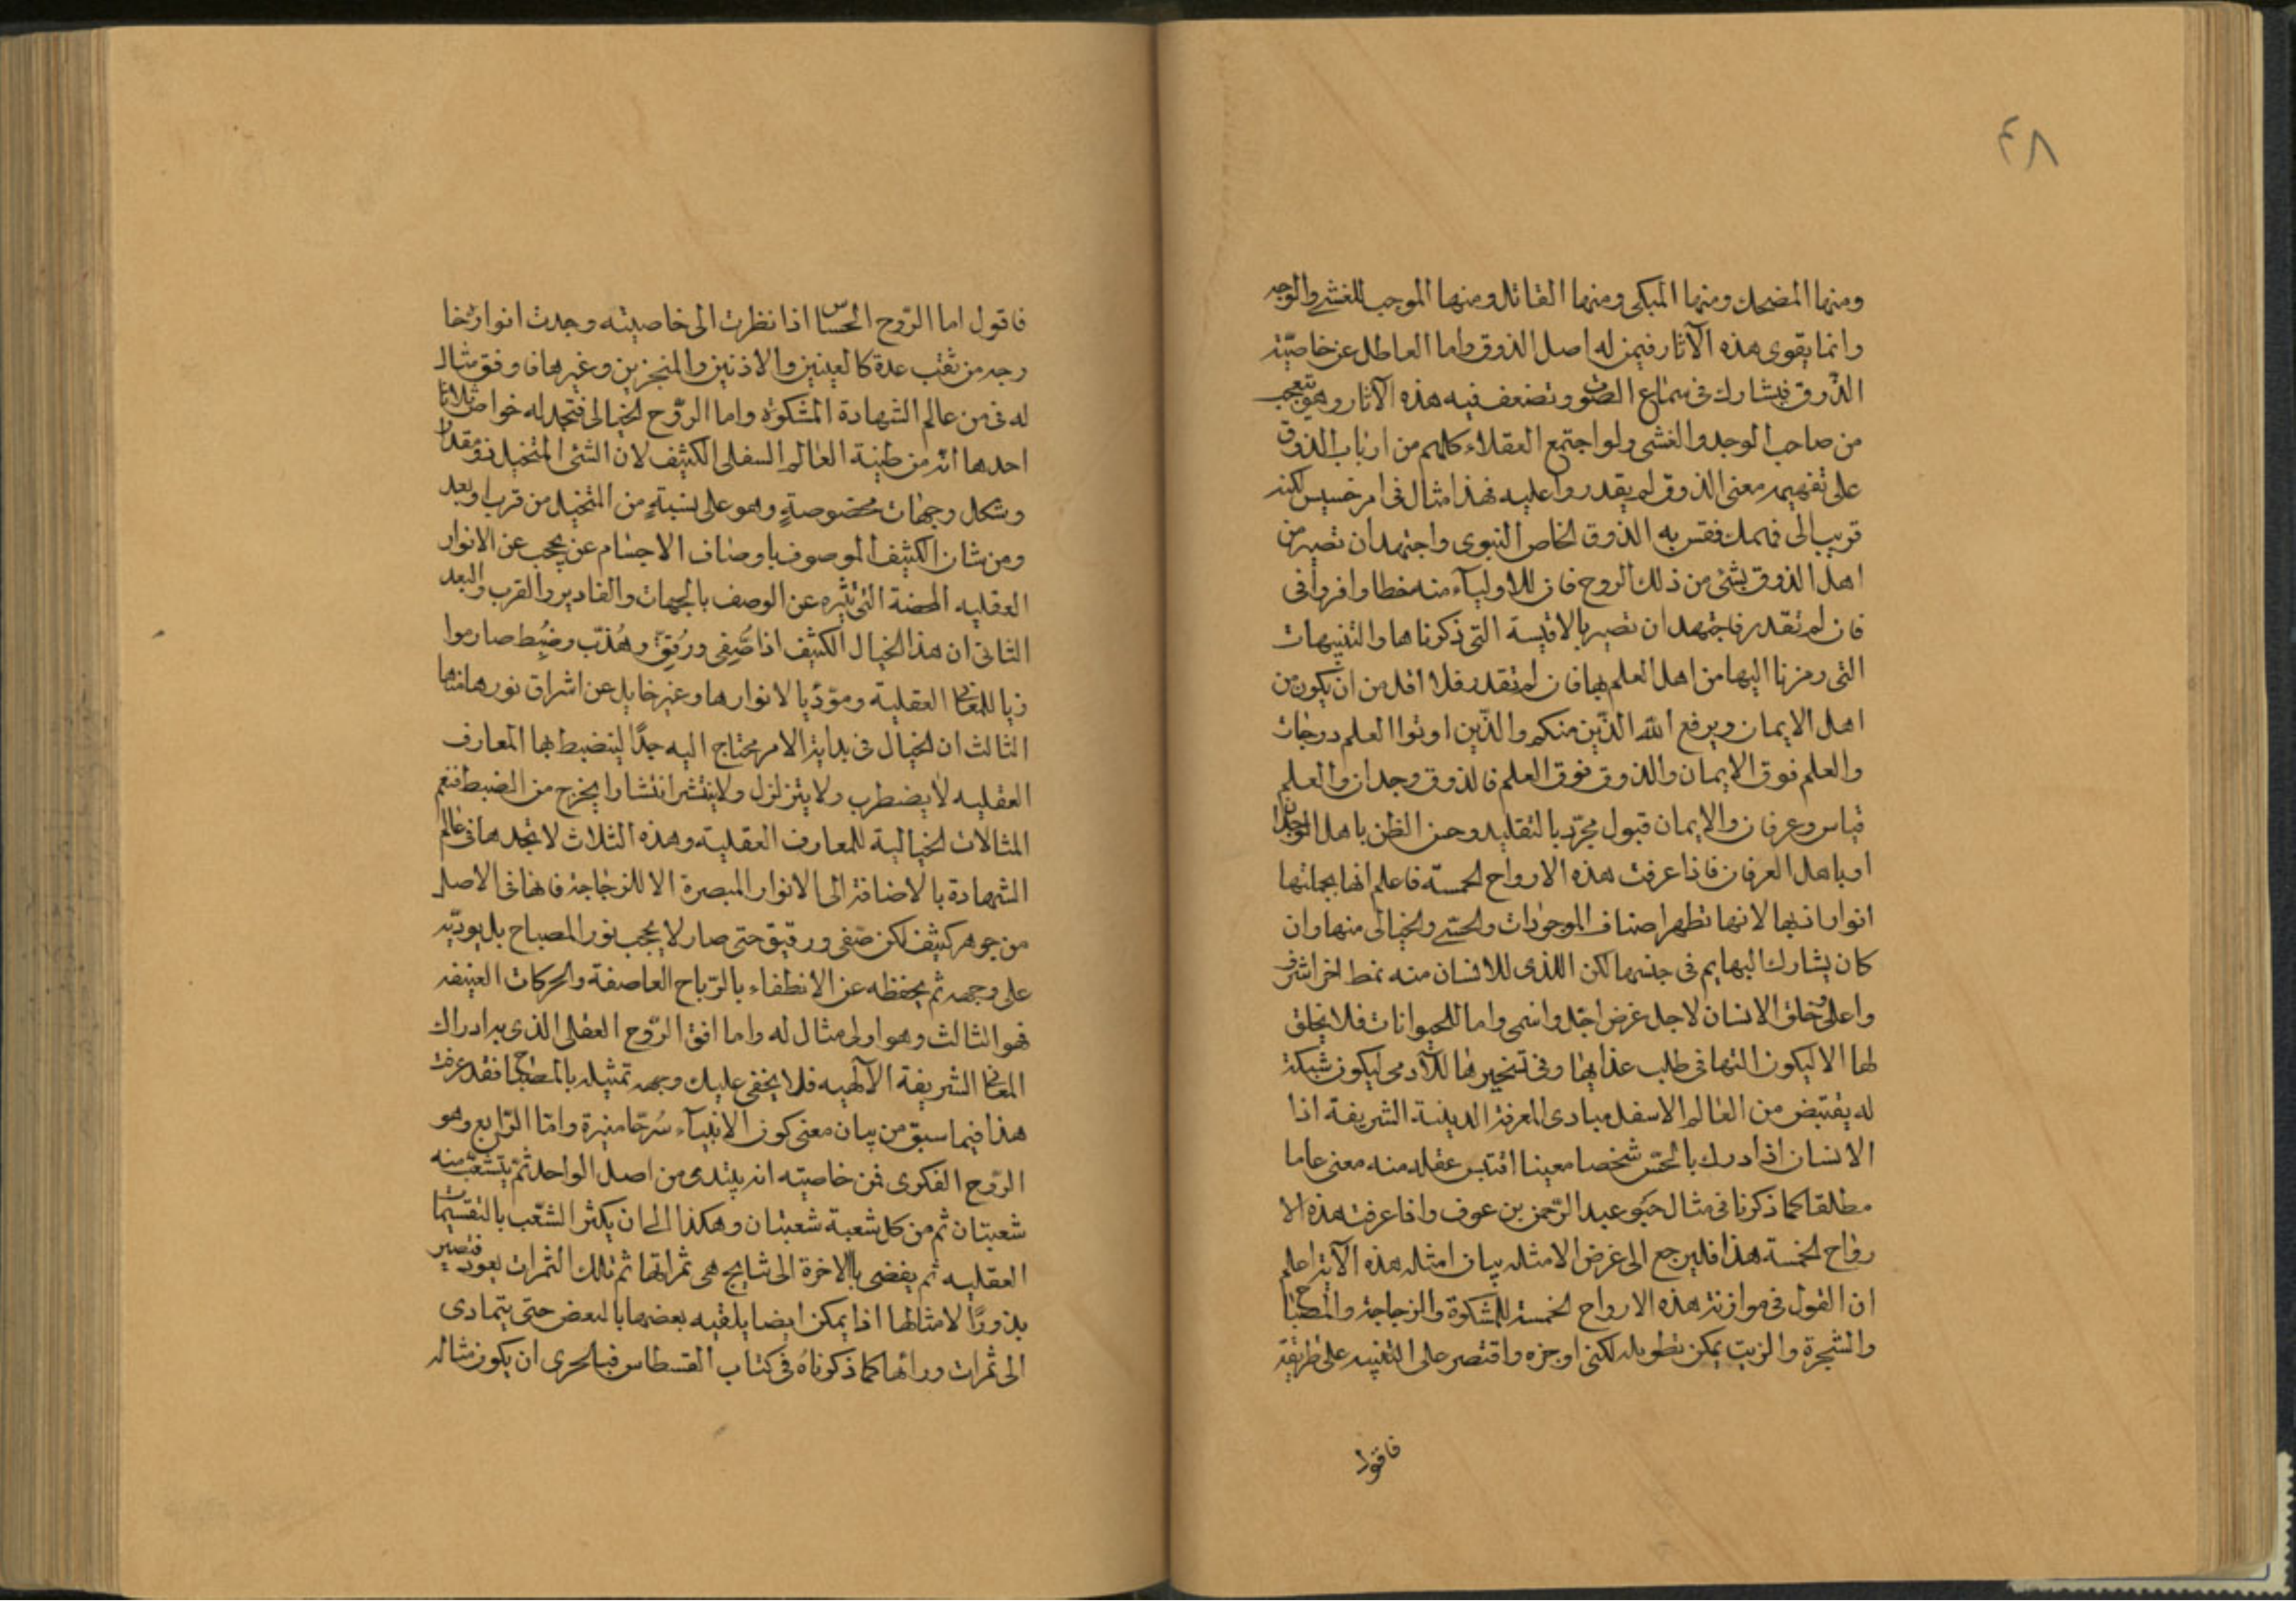 ٤٨
ومنها المضحك ومنها المبكى ومنها القاتل ومنها الموجب للغشى والوجد
وانما يقوى هذه الآثار فيمن له اصل الذوق واما العاطل عن خاصّيّة
الذّوق فيشارك فى سماع الصّوت وتضعف فيه هذه الآثار وهو يتعجب
من صاحب الوجد والغشى ولو اجتمع العقلاء كلهم من ارباب الذوق
على تفهيمه معنى الذوق لم يقدروا عليه فهذا مثال فى امر خسيس لكنه
قريب الى فهمك فقس به الذوق الخاص النبوى واجتهد ان تصير من
اهل الذوق بشئ من ذلك الروح فان للاولياء منه خطا وافرا فى
فان لم تقدر فاجتهد ان تصير بالاقيسة التى ذكرناها والتنبيهات
التى رمزنا اليها من اهل العلم بها فان لم تقدر فلا اقل من ان يكون من
اهل الايمان ويرفع الله الذّين منكم والذّين اوتوا العلم درجات
والعلم فوق الايمان والذوق فوق العلم فالذوق وجدان والعلم
قياس وعرفان والايمان قبول مجرّد بالتقليد وحسن الظن باهل الوجدان
او باهل العرفان فاذا عرفت هذه الارواح الخمسة فاعلم انها بجملتها
انوار انها لانها تظهر اصناف الموجودات والحسّى والخيالى منها وان
كان يشارك البهايم فى جنسها لكن اللذى للانسان منه نمط اخر اشرف
واعلى وخلق الانسان لاجل غرض اجّل واسمى واما للحيوانات فلا يخلق
لها الا ليكون التها فى طلب غذايها وفى تسخيرها للآدمى ليكون شبكة
له يقتبض من العالم الاسفل مبادى المعرفة الدينية الشريفة اذا
الانسان اذا درك بالحسّ شخصا معينا اقتبس عقله منه معنى عاما
مطلقا كما ذكرنا فى مثال حَبْو عبد الرّحمن بن عوف واذا عرفت هذه الا
رواح الخمسة هذا فليرجع الى غرض الامثله بيان امثله هذه الآية اعلم
ان القول فى موازنة هذه الارواح الخمسة للمشكوة والزجاجة والمصباح
والشجرة والزيت يمكن تطويله لكنى اوجزه واقتصر على التنبيه على طريقة
فاقول
فاقول اما الرّوح الحساس اذا نظرت الى خاصيته وجدت انواره خا
رجه من ثقب عدة كالعينين والاذنين والمنخرين وغيرها فاوفق مثال
له فى من عالم الشهادة المشكوة واما الرّوح الخيالى فتجد له خواص ثلاثا
احدها انه من طينة العالم السفلى الكثيف لان الشئ المتخيل ذو مقدار
وشكل وجهات مخصوصةٍ وهو على نسبةٍ من المتخيل من قرب او بعد
ومن شان الكثيف الموصوف باوصاف الاجسام عن يحجب عن الانوار
العقليه المحضة التى تنزه عن الوصف بالجهات والقادير والقرب والبعد
الثانى ان هذا الخيال الكثيف اذا صُّفِى ورُقِّق وهُذّب وضُبِط صار موا
زيا للمعانى العقلية ومؤدّيا لانوارها وغير خايل عن اشراق نورها منها
الثالث ان الخيال فى بداية الامر محتاج اليه جدّا لينضبط بها المعارف
العقليه لا يضطرب ولا يتزلزل ولا ينتشر انتشارا يخرج من الضبط فنعم
المثالات الخيالية للمعارف العقلية وهذه الثلاث لا تجدها فى عالم
الشهادة بالاضافة الى الانوار المبصرة الا للزجاجة فانها فى الاصل
من جوهر كثيف لكن صفى ورقيق حتى صار لا يحجب نور المصباح بل يودّيه
على وجهه ثم يحفظه عن الانطفاء بالرّياح العاصفة والحركات العنيفه
فهو الثالث وهو اولى مثال له واما افق الرّوح العقلى الذى به ادراك
المعانى الشريفة الآلهيه فلا يخفى عليك وجه تمثيله بالمصباح فقد عرفت
هذا فيما سبق من بيان معنى كون الانبيآء سُرجًا منيرة وامّا الرّابع وهو
الرّوح الفكرى فمن خاصيته انه يبتدى من اصل الواحد ثمّ يتشعّب منه
شعبتان ثم من كل شعبة شعبتان وهكذا الى ان يكثر الشعّب بالتقسيمات
العقليه ثم يفضى بالاخرة الى نتايج هى ثمراتها ثم تلك الثمرات يعود فتصير
بذورًا لامثالها اذا يمكن ايضا يلقيه بعضها بالبعض حتى يتمادى
الى ثمرات ورائها كما ذكرناهُ فى كتاب القسطاس فبالحرى ان يكون مثاله